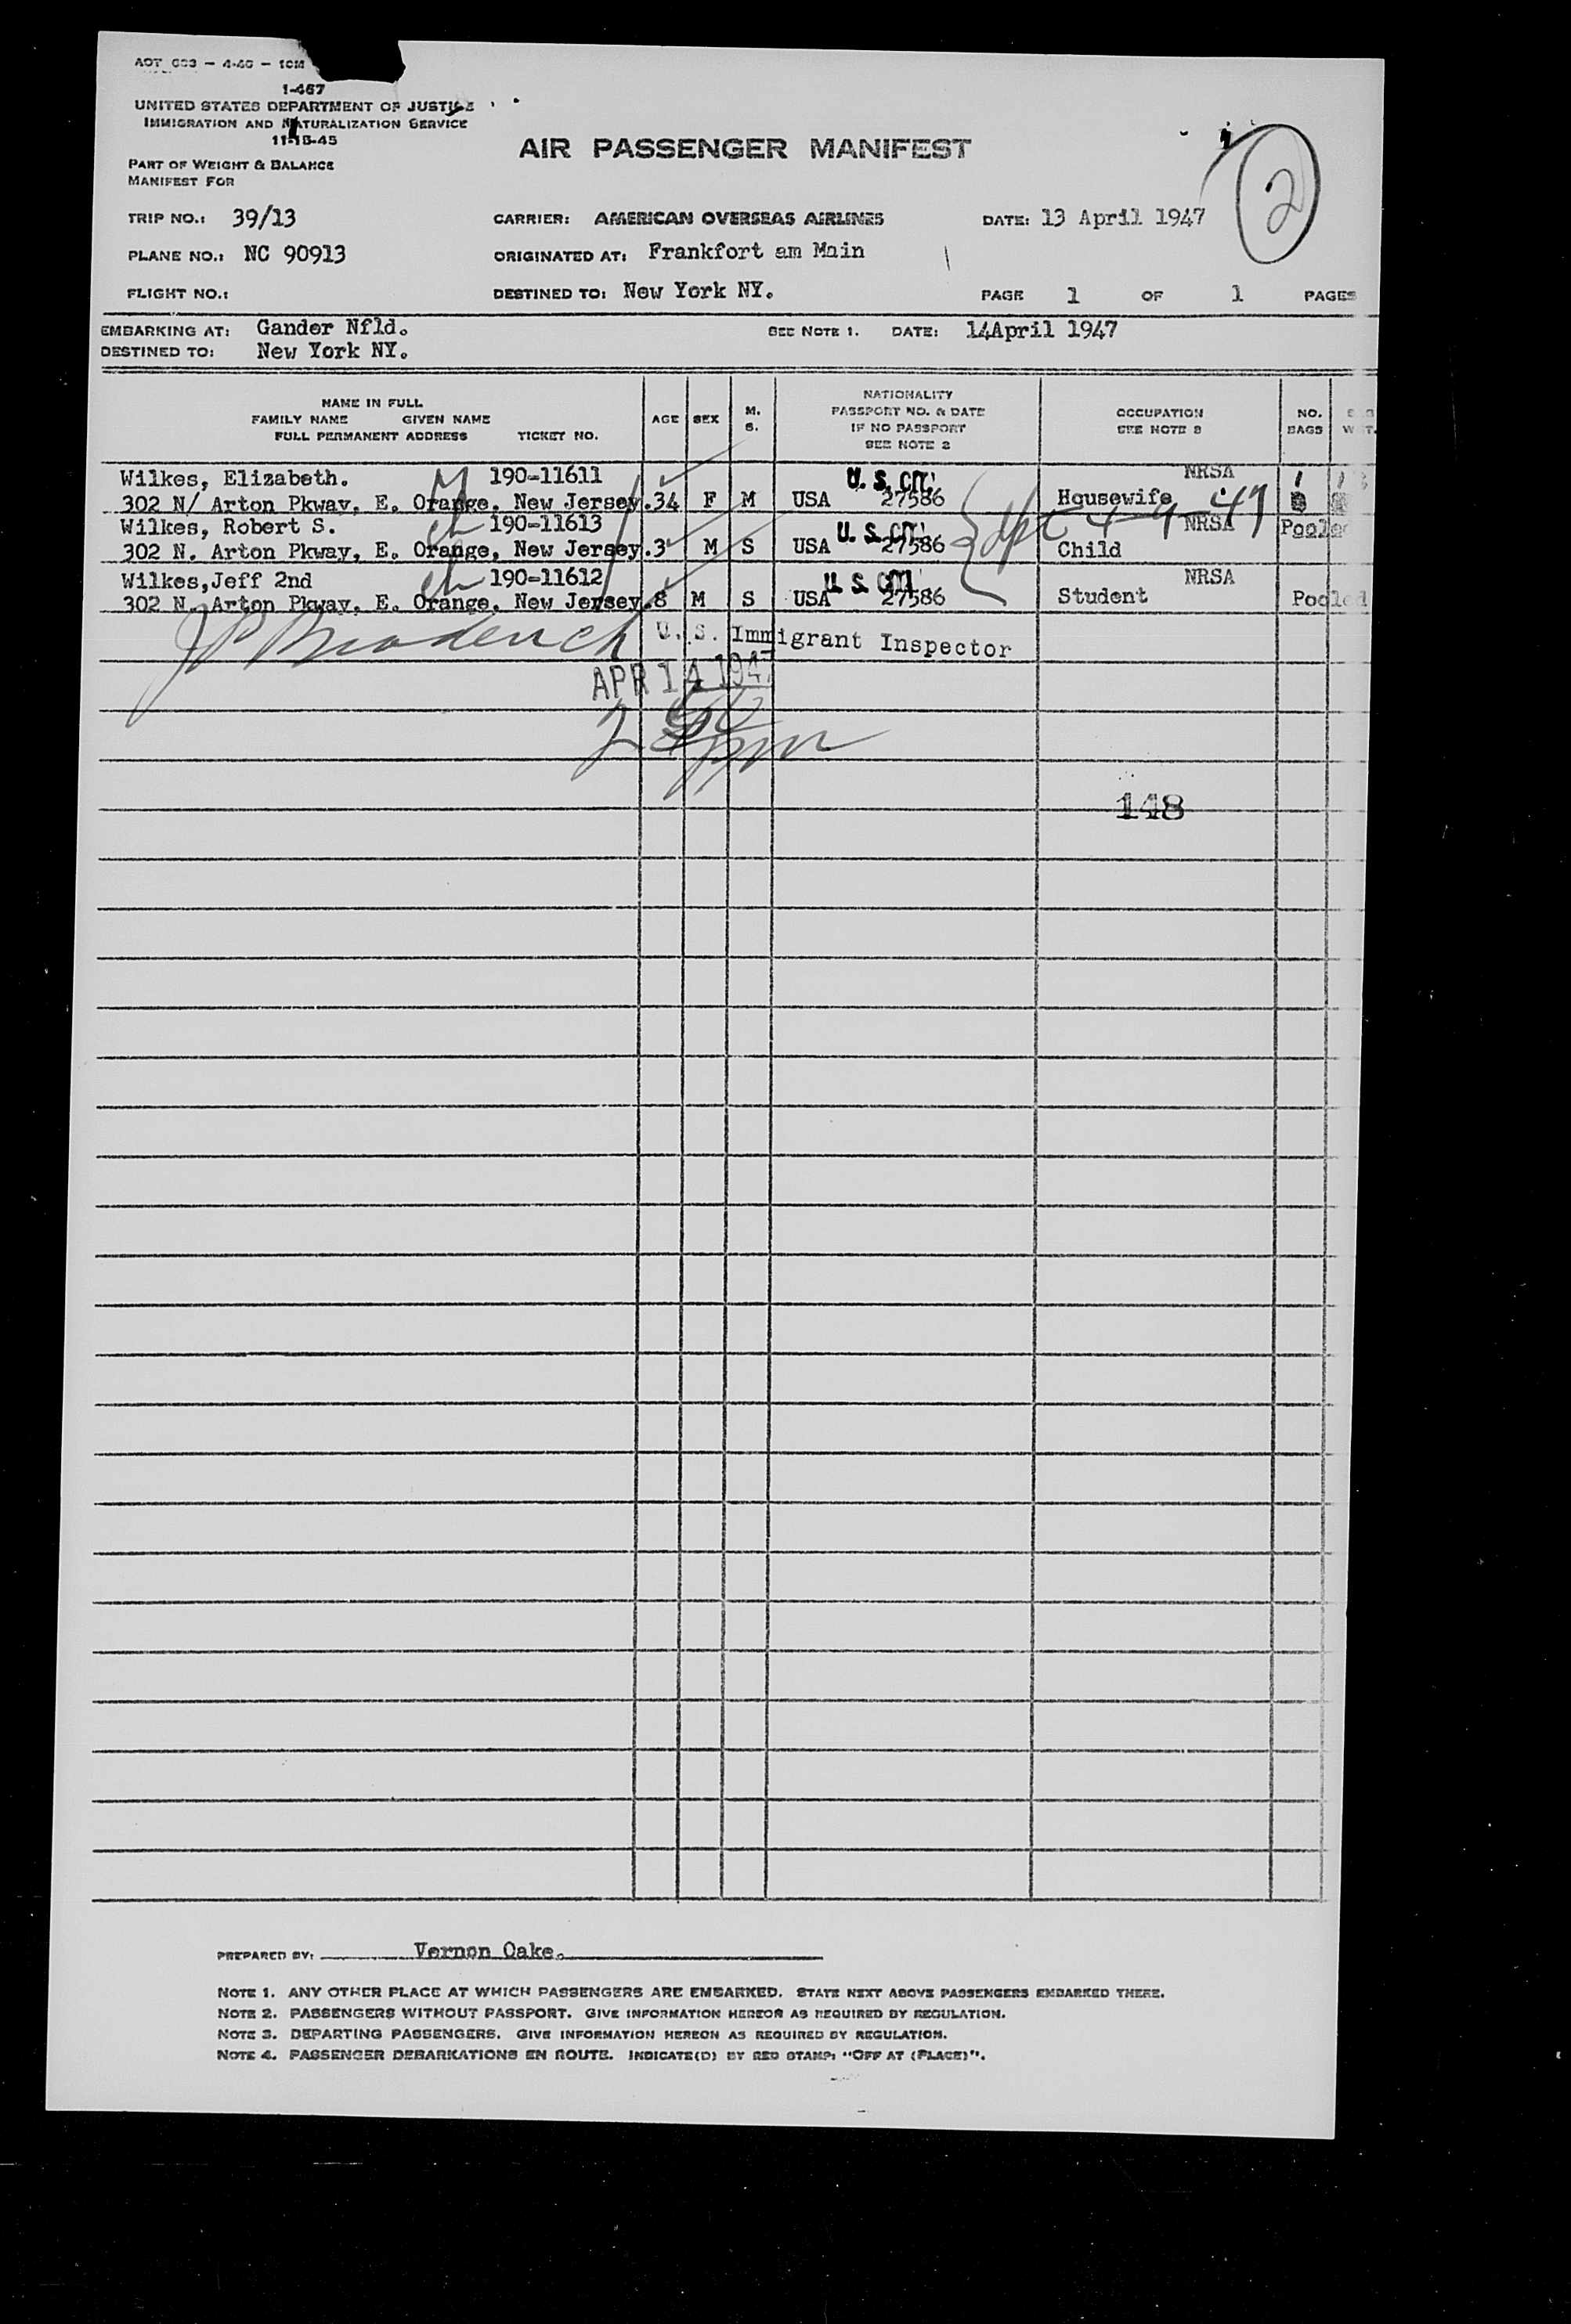 1-467
UNITED STATES DEPARTMENT OF JUSTICE
IMMIGRATION AND NATURALIZATION SERVICE
11-15-45
AIR PASSENGER MANIFEST
2
PART OF WEIGHT & BALANCE
MANIFEST FOR
TRIP NO.: 39/13 CARRIER: AMERICAN OVERSEAS AIRLINES DATE: 13 April 1947
PLANE NO.: NC 90913 ORIGINATED AT: Frankfort am Main
FLIGHT NO.: DESTINED TO: New York NY. PAGE 1 OF 1 PAGES
EMBARKING AT: Gander Nfld. SEE NOTE 1. DATE: 14April 1947
DESTINED TO: New York NY.
NAME IN FULL
FAMILY NAME GIVEN NAME
FULL PERMANENT ADDRESS TICKET NO.
AGE SEX M. S.
NATIONALITY
PASSPORT NO. & DATE
IF NO PASSPORT
SEE NOTE 2
OCCUPATION
SEE NOTE 3
NO.
BAGS
Wilkes, Elizabeth. 190-11611 U. S. CIT. NRSA 1
302 N/ Arton Pkway, E. Orange, New Jersey. 34 F M USA 27586 Housewife
4-9-47
Wilkes, Robert S. 190-11613 U. S. CIT. NRSA Pooled
302 N. Arton Pkway, E. Orange, New Jersey. 3 M S USA 27586 Child
Wilkes,Jeff 2nd 190-11612 U. S. CIT. NRSA
302 N. Arton Pkway, E. Orange, New Jersey. 8 M S USA 27586 Student Pooled
U. S. Immigrant Inspector
APR 14 1947
148
PREPARED BY: Vernon Oake.
NOTE 1. ANY OTHER PLACE AT WHICH PASSENGERS ARE EMBARKED. STATE NEXT ABOVE PASSENGERS EMBARKED THERE.
NOTE 2. PASSENGERS WITHOUT PASSPORT. GIVE INFORMATION HEREON AS REQUIRED BY REGULATION.
NOTE 3. DEPARTING PASSENGERS. GIVE INFORMATION HEREON AS REQUIRED BY REGULATION.
NOTE 4. PASSENGER DEBARKATIONS EN ROUTE. INDICATE(D) BY RED STAMP: "OFF AT (PLACE)".